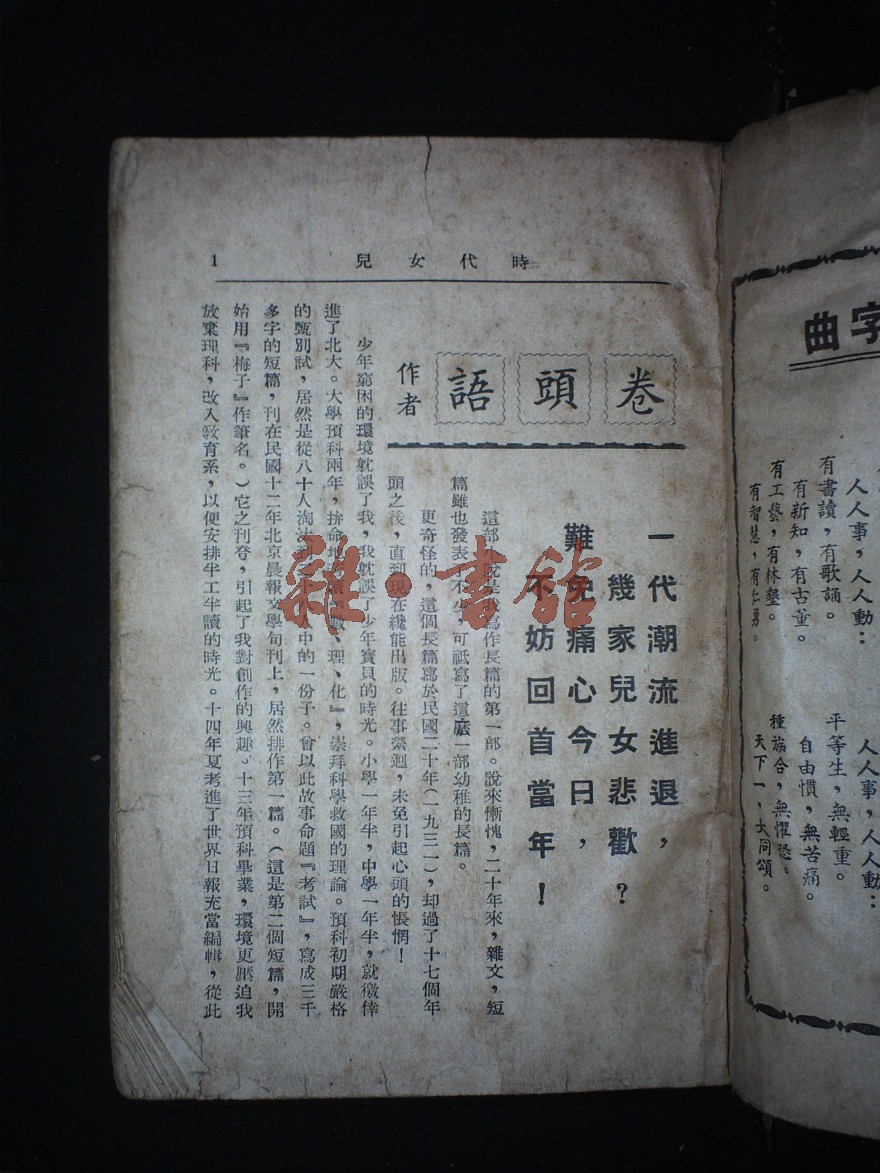 字曲
人人事，人人動：
有書讀，有歌誦。
有新知，有古董。
有工藝，有林墾。
有智慧，有仁勇。
人人事，人人動：
平等生，無輕重。
自由慣，無苦痛。
種族合，無懼恐。
天下一，大同頌。
時代女兒
1
卷頭語
作者
一代潮流進退，
幾家兒女悲歡？
難免痛心今日，
不妨回首當年！
這部小說是我寫作長篇的第一部。說來慚愧，二十年來，雜文，短
篇雖也發表了不少，可祇寫了這麼一部幼稚的長篇。
更奇怪的，這個長篇寫於民國二十年（一九三一），却過了十七個年
頭之後，直到現在纔能出版。往事縈迴，未免引起心頭的悵惘！
少年窮困的環境躭誤了我，我躭誤了少年寶貝的時光。小學一年半，中學一年半，就徼倖
進了北大。大學預科兩年，拚命地數、理、化』，崇拜科學救國的理論。預科初期嚴格
的甄別試，居然是從八十人淘汰到十人中的一份子。曾以此故事命題『考試』，寫成三千
多字的短篇，刊在民國十二年北京晨報文學旬刊上，居然排作第一篇。（這是第二個短篇，開
始用『梅子』作筆名。）它之刊登，引起了我對創作的興趣。十三年預科畢業，環境更壓迫我
放棄理科，改入敎育系，以便安排半工半讀的時光。十四年夏考進了世界日報充當編輯，從此
雜·書館